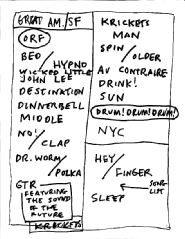 GREAT AM./SF
ORF
BED / HYPNO
WICKED LITTLE
JOHN LEE
DESTINATION
DINNERBELL
MIDDLE
NO! / CLAP
DR. WORM / POLKA
GTR
FEATURING
THE SOUND
OF THE
FUTURE
KRICKETS
KRICKETS
MAN
SPIN / OLDER
AU CONTRAIRE
DRINK!
SUN
DRUM! DRUM! DRUM!
NYC
HEY / FINGER
SONG
LIST
SLEEP